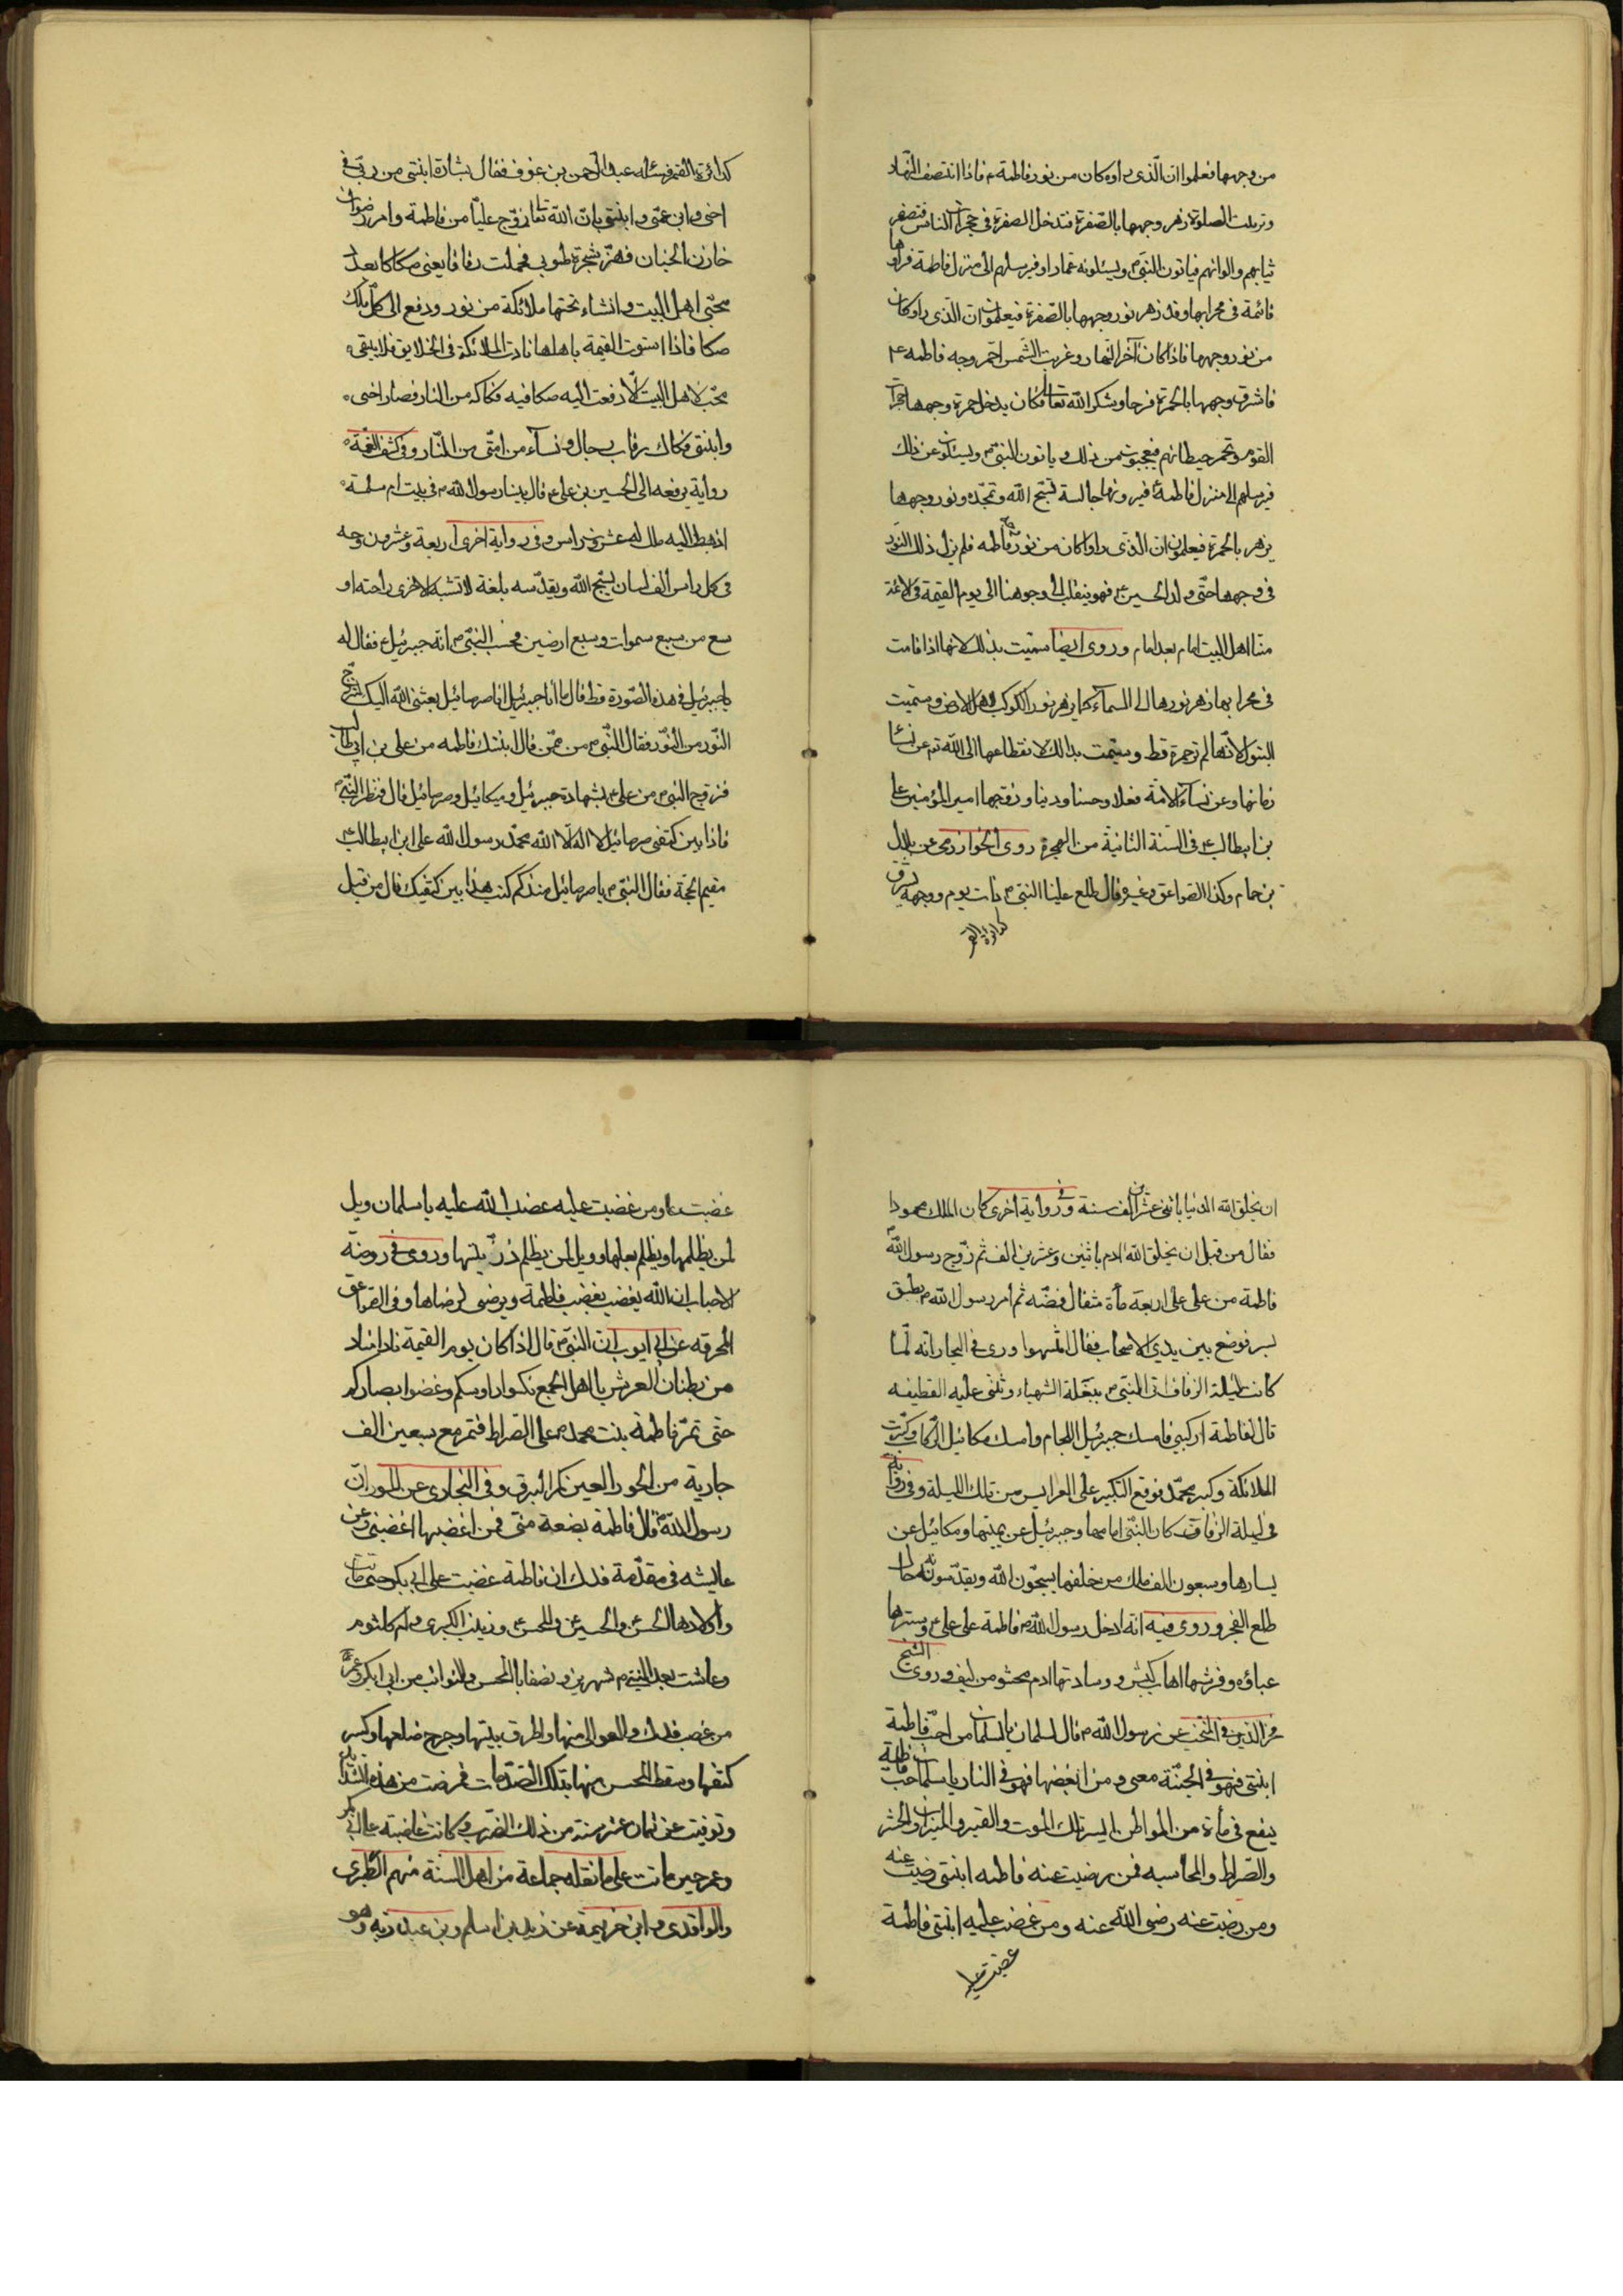 من وجهها فعلموا ان الّذى راوه كان من نور فاطمة ع فاذا انتصف النّهار
وترتبت الصلوة زهر وجهها بالصّفرة فتدخل الصفرة فى حجرات الناس فتصفر
ثيابهم والوانهم فياتون النبىّ ص ويسئلونه عمّا راوا فيرسلهم الى منزل فاطمة فراوها
قائمة فى محرابها وقد زهر نور وجهها بالصّفرة فيعلمون ان الذى راوا كان
من نور وجهها فاذا كان آخر النهار وغربت الشّمس احمّر وجه فاطمه ع
فاشرق وجهها بالحمرة فرحا وشكر الله تعالى فكان يدخل حمرة وجهها حجرات
القوم وتحمر حيطانهم فيعجبون من ذلك وياتون النبىّ ص ويسئلون عن ذلك
فيرسلهم الى منزل فاطمة ع فيرونها جالسة تسبّح الله وتمجّده ونور وجهها
يزهر بالحمرة فيعلمون ان الذى راوا كان من نور وجه فاطمه فلم يزل ذلك النّور
فى وجهها حتّى ولد الحسين ع فهو يتقلب فى وجوهنا الى يوم القيمة فى الائمّة
منّا اهل البيت امام بعد امام وروى ايضا سمّيت بذلك لانها اذا قامت
فى محرابها زهر نورها الى السمآء كما يزهر نور الكوكب لاهل الارض وسمّيت
البتول لانّها لم تر حمرة قط وسمّيت بذالك لانقطاعها الى الله تع عن نسآء
زمانها وعن نسآء الامّة فعلا وحسنا ودينا وزوّجها امير المؤمنين على
بن ابيطالب ع فى السّنة الثانيّة من الهجرة روى الخوارزمى عن بلال
بن حمام وكذا الصّواعق وغيره قال طلع علينا النبىّ ص ذات يوم ووجهه يشرق
كدائرة القمر
كدائرة القمر فسئله عبد الرّحمن بن عوف فقال بشارة ابنتى من ربّى فى
اخى وابن عمّى وابنتى بانّ الله تعالى زوّج عليّا من فاطمة وامر رضوان
خازن الجنان فهزّ شجرة طوبى فحملت رقاقا يعنى صكاكا بعدد
محبّى اهل البيت وانشاء تحتها ملائكة من نور ودفع الى كلّ ملك
صكا فاذا استوت القيمة باهلها نادت الملائكة فى الخلايق فلا يبقى
محبّ لاهل البيت الّا دفعت اليه صكا فيه فكاكه من النار فصار اخى
وابنتى فكاك رقاب رجال ونسآء من امّتى من النّار وفى كشف الغمّة
رواية يرفعه الى الحسين بن على ع قال بينا رسول الله ص فى بيت ام سلمة
اذ هبط اليه ملك له عشرون راس وفى رواية اخرى اربعة وعشرون وجه
فى كل راس الف لسان يسبّح الله ويقدّسه بلغة لا تشبه الاخرى راحته او
سع من سبع سموات وسبع ارضين فحسب النبىّ ص انّه جبرئيل ع فقال له
يا جبرئيل فى هذه الصّورة قط قال ما انا جبرئيل انا صرصائيل بعثنى الله اليك لتزوّج
النّور من النّور فقال النّبى ص من ممّن قال ابنتك فاطمه من على بن ابيطالب
فزوّج النبى ص من على ع بشهادة جبرئيل وميكائيل وصرصائيل قال فنظر النّبىّ ص
فاذا بين كتفى صرصائيل لا اله الّا الله محمّد رسول الله على ابن ابيطالب ع
مقيم الحجّة فقال النبىّ ص يا صرصائيل منذ كم كتب هذا بين كتفيك قال من قبل
ان يخلق الله الدنيا باثنى عشر الف سنة وفى رواية اخرى كان الملك محمودا
فقال من قبل ان يخلق الله ادم باثنين وعشرين الف ثم زوّج رسول الله ص
فاطمة من على على اربعة مأة مثقال فضّه ثم امر رسول الله ص بطبق
بسر فوضع بين يدى الاصحاب فقال انهبوا وروى فى البحار انّه لمّا
كانت ليلة الزفاف اتى النبى ص ببغلة الشهباء وثنى عليه القطيفه
قال لفاطمة اركبى فامسك جبرئيل اللجام وامسك ميكائيل الرّكاب وكبّرت
الملائكة وكبر محمّد فوقع التكبير على العرايس من تلك الليلة وفى رواية
فى ليلة الزفاف كان النّبى امامها وجبرئيل عن يمينها وميكائيل عن
يسارها وسبعون الف ملك من خلفها يسبّحون الله ويقدّسونه حتّى
طلع الفجر وروى فيه انّه ادخل رسول الله ص فاطمة على على ع وسترها
عباؤه وفرشها اهاب كبش ووسادتها ادم محشو من ليف وروى الشيخ
فخر الدّين فى المنتخب عن رسول الله ص قال لسلمان يا سلمان من احبّ فاطمة
ابنتى فهو فى الجنّة معى ومن ابغضها فهو فى النار يا سلمان حبّ فاطمة
ينفع فى مأة من المواطن ايسر تلك الموت والقبر والميزان والحشر
والصّراط والمحاسبه فمن رضيت عنه فاطمه ابنتى رضيت عنه
ومن رضيت عنه رضى الله عنه ومن غضب عليه ابنتى فاطمة
غضبت عليه
غضبت عليه ومن غضبت عليه غضب الله عليه يا سلمان ويل
لمن يظلمها ويظلم بعلها وويل لمن يظلم ذرّيتها وروى فى روضة
الاحباب ان الله يغضب بغضب فاطمة ويرضى لرضاها وفى الصّواعق
المحرقه عن ابى ايوب ان النبىّ ص قال اذا كان يوم القيمة نادا مناد
من بطنان العرش يا اهل الجمع نكسوا رؤسكم وغضوا ابصاركم
حتى تمرّ فاطمة بنت محمد ص على الصّراط فتمر مع سبعين الف
جارية من الحور العين كمر البرق وفى البخارى عن المسور انّ
رسول الله ص قال فاطمة بضعة منّى فمن اغضبها اغضبنى وعن
عايشه فى مقدّمة فدك ان فاطمة غضبت على ابى بكر حتى ماتت
واولادها الحسن والحسين والمحسن وزينب الكبرى وام كلثوم
وعاشت بعد النبىّ ص شهرين ونصفا بالمحسن والنوائب من ابى بكر وعمر
من غصب فدك والعوالى منها واحرق بيتها وجرح ضلعها وكسر
كتفها وسقط المحسن منها بتلك الصّدمات فمرضت من هذه الشدائد
وتوفيت عن ثمان عشر سنة من ذلك الضرب وكانت غاضبة على ابى بكر
وعمر حين ماتت على ما نقله جماعة من اهل السنة منهم الطبرى
والواقدى وابن خزيمة عن زيد بن اسلم وبن عبد ربه وهو